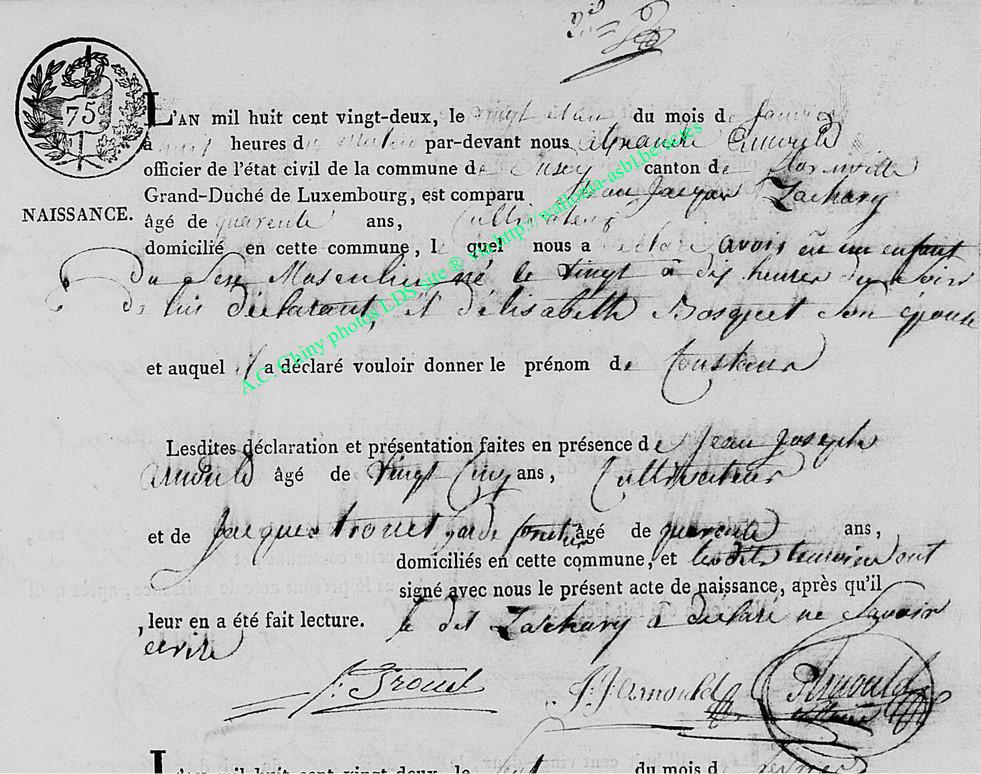 75c
L'AN mil huit cent vingt-deux, le vingt et un du mois de Janvier
à huit heures du Matin par-devant nous Alexandre Arnould
officier de l'état civil de la commune de canton de florenville
Grand-Duché de Luxembourg, est comparu Jean Jacques Zachary
NAISSANCE.
âgé de quarente ans, Cultivateur
domicilié en cette commune, lequel nous a déclaré avoir eu un enfant
Du Sexe Masculin né le vingt à dix heures du Soir
de lui déclarant, et d'élisabeth Bosquet Son épouse
et auquel il a déclaré vouloir donner le prénom de
Lesdites déclaration et présentation faites en présence de Jean Joseph
Arnould âgé de vingt Cinq ans, Cultivateur
et de Jacques trouet garde forestier âgé de quarente ans,
domiciliés en cette commune, et lesdits temoins ont
signé avec nous le présent acte de naissance, après qu'il
leur en a été fait lecture. le dit Zachary à déclaré ne Savoir
écrire
J: Trouet J. J. Arnould Arnould
L'AN mil huit cent vingt-deux, le du mois de fevrier
A.C. Chiny photos LDS site ® via http://wallonia-asbl.be/actes